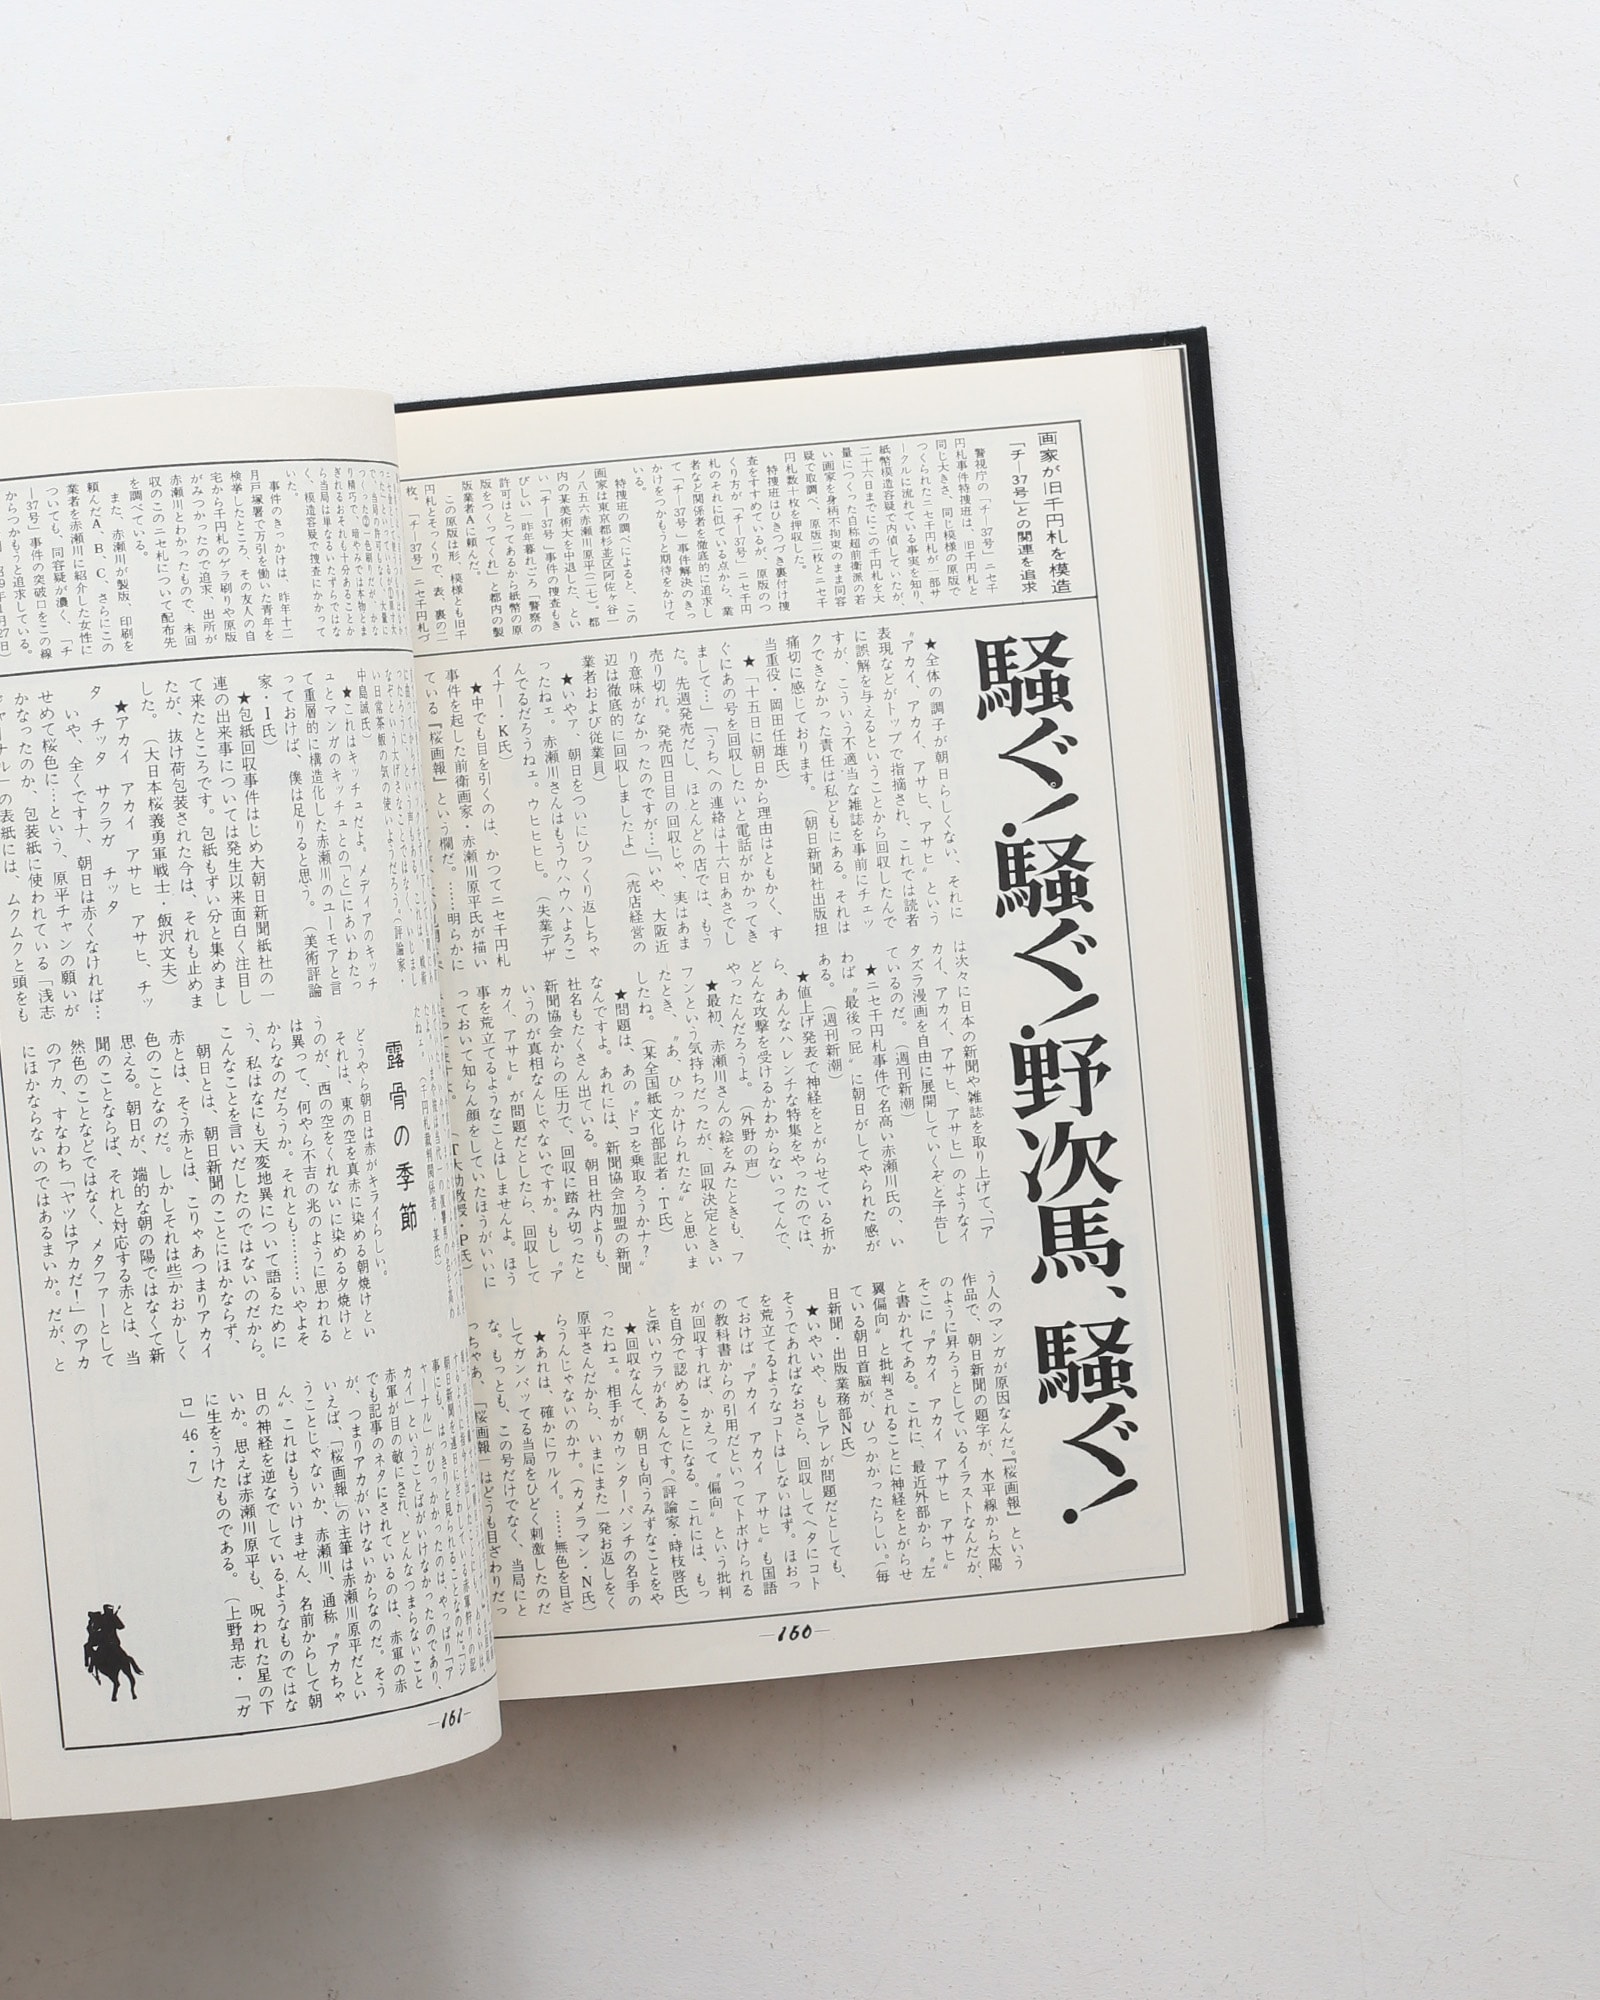 騒ぐ！騒ぐ！野次馬、騒ぐ！
画家が旧千円札を模造
「チ―37号」との関連を追求
警視庁の「チ―37号」ニセ千
円札事件特捜班は、旧千円札と
同じ大きさ、同じ模様の原版で
つくられたニセ千円札が一部サ
ークルに流れている事実を知り、
紙幣模造容疑で内偵していたが、
二十六日までにこの千円札を大
量につくった自称超前衛派の若
い画家を身柄不拘束のまま同容
疑で取調べ、原版二枚とニセ千
円札数十枚を押収した。
特捜班はひきつづき裏付け捜
査をすすめているが、原版のつ
くり方が「チ―37号」ニセ千円
札のそれに似ている点から、業
者など関係者を徹底的に追求し
て「チ―37号」事件解決のきっ
かけをつかもうと期待をかけて
いる。
特捜班の調べによると、この
画家は東京都杉並区阿佐ヶ谷一
ノ八五六赤瀬川原平(二七)。都
内の某美術大を中退した、とい
い「チ―37号」事件の捜査もき
びしい一昨年暮れごろ「警察の
許可はとってあるから紙幣の原
版をつくってくれ」と都内の製
版業者Aに頼んだ。
この原版は形、模様とも旧千
円札とそっくりで、表、裏の二
枚。「チ―37号」ニセ千円札づ
★全体の調子が朝日らしくない、それに
〝アカイ、アカイ、アサヒ、アサヒ〟という
表現などがトップで指摘され、これでは読者
に誤解を与えるということから回収したんで
すが、こういう不適当な雑誌を事前にチェッ
クできなかった責任は私どもにある。それは
痛切に感じております。（朝日新聞社出版担
当重役・岡田任雄氏）
★「十五日に朝日から理由はともかく、す
ぐにあの号を回収したいと電話がかかってき
まして…」「うちへの連絡は十六日あさでし
た。先週発売だし、ほとんどの店では、もう
売り切れ。発売四日目の回収じゃ、実はあま
り意味がなかったのですが…」「いや、大阪近
辺は徹底的に回収しましたよ」（売店経営の
業者および従業員）
★いやァ、朝日をついにひっくり返しちゃ
ったねェ。赤瀬川さんはもうウハウハよろこ
んでるだろうねェ。ウヒヒヒヒ。（失業デザ
イナー・K氏）
★中でも目を引くのは、かつてニセ千円札
事件を起した前衛画家・赤瀬川原平氏が描い
ている『桜画報』という欄だ。……明らかに
は次々に日本の新聞や雑誌を取り上げて、「ア
カイ、アカイ、アサヒ、アサヒ」のようなイ
タズラ漫画を自由に展開していくぞと予告し
ているのだ。（週刊新潮）
★ニセ千円札事件で名高い赤瀬川氏の、い
わば〝最後っ屁〟に朝日がしてやられた感が
ある。（週刊新潮）
★値上げ発表で神経をとがらせている折か
ら、あんなハレンチな特集をやったのでは、
どんな攻撃を受けるかわからないってんで、
やったんだろうよ。（外野の声）
★最初、赤瀬川さんの絵をみたときも、フ
フンという気持ちだったが、回収決定ときい
たとき、〝あ、ひっかけられたな〟と思いま
したね。（某全国紙文化部記者・T氏）
★問題は、あの〝ドコを乗取ろうかナ？〟
なんですよ。あれには、新聞協会加盟の新聞
社名もたくさん出ている。朝日社内よりも、
新聞協会からの圧力で、回収に踏み切ったと
いうのが真相なんじゃないですか。もし〝ア
カイ、アサヒ〟が問題だとしたら、回収して
事を荒立てるようなことはしませんよ。ほう
っておいて知らん顔をしていたほうがいいに
う人のマンガが原因なんだ。『桜画報』という
作品で、朝日新聞の題字が、水平線から太陽
のように昇ろうとしているイラストなんだが、
そこに〝アカイ アカイ アサヒ アサヒ〟
と書かれてある。これに、最近外部から〝左
翼偏向〟と批判されることに神経をとがらせ
ている朝日首脳が、ひっかかったらしい。（毎
日新聞・出版業務部N氏）
★いやいや、もしアレが問題だとしても、
そうであればなおさら、回収してヘタにコト
を荒立てるようなコトはしないはず。ほおっ
ておけば〝アカイ アカイ アサヒ〟も国語
の教科書からの引用だといってトボけられる
が回収すれば、かえって〝偏向〟という批判
を自分で認めることになる。これには、もっ
と深いウラがあるんです。（評論家・時枝啓氏）
★回収なんて、朝日も向うみずなことをや
ったねェ。相手がカウンターパンチの名手の
原平さんだから、いまにまた一発お返しをく
らうんじゃないのかナ。（カメラマン・N氏）
★あれは、確かにワルイ。……無色を目ざ
してガンバッてる当局をひどく刺激したのだ
な。もっとも、この号だけでなく、当局にと
っちゃあ、「桜画報」はどうも目ざわりだっ
―160―
く、模造容疑で捜査にかかって
いた。
事件のきっかけは、昨年十二
月戸塚署で万引を働いた青年を
検挙したところ、その友人の自
宅から千円札のゲラ刷りや原版
がみつかったので追求、出所が
赤瀬川とわかったもので、未回
収のこのニセ札について配布先
を調べている。
また、赤瀬川が製版、印刷を
頼んだA、B、C、さらにこの
業者を赤瀬川に紹介した女性に
ついても、同容疑が濃く、「チ
―37号」事件の突破口をこの線
からつかもうと追求している。
中島誠氏）
★これはキッチュだよ。メディアのキッチ
ュとマンガのキッチュとの「と」にあいわたっ
て重層的に構造化した赤瀬川のユーモアと言
っておけば、僕は足りると思う。（美術評論
家・I氏）
★包紙回収事件はじめ大朝日新聞紙社の一
連の出来事については発生以来面白く注目し
て来たところです。包紙もずい分と集めまし
たが、抜け荷包装された今は、それも止めま
した。（大日本桜義勇軍戦士・飯沢文夫）
★アカイ アカイ アサヒ アサヒ、チッ
タ チッタ サクラガ チッタ
いや、全くですナ、朝日は赤くなければ…
せめて桜色に…という、原平チャンの願いが
かなったのか、包装紙に使われている「浅志
の表紙には、ムクムクと頭をも
露骨の季節
どうやら朝日は赤がキライらしい。
それは、東の空を真赤に染める朝焼けとい
うのが、西の空をくれないに染める夕焼けと
は異って、何やら不吉の兆のように思われる
からなのだろうか。それとも………いやよそ
う、私はなにも天変地異について語るために
こんなことを言いだしたのではないのだから。
朝日とは、朝日新聞のことにほかならず、
赤とは、そう赤とは、こりゃあつまりアカイ
色のことなのだ。しかしそれは些かおかしく
思える。朝日が、端的な朝の陽ではなくて新
聞のことならば、それと対応する赤とは、当
然色のことなどではなく、メタファーとして
のアカ、すなわち「ヤツはアカだ！」のアカ
にほかならないのではあるまいか。だが、と
カイ」ということばがいけなかったのであり、
赤軍が目の敵にされ、どんなつまらないこと
でも記事のネタにされているのは、赤軍の赤
が、つまりアカがいけないからなのだ。そう
いえば、「桜画報」の主筆は赤瀬川原平だとい
うことじゃないか、赤瀬川、通称〝アカちゃ
ん〟これはもういけません、名前からして朝
日の神経を逆なでしているようなものではな
いか。思えば赤瀬川原平も、呪われた星の下
に生をうけたものである。（上野昂志・「ガ
ロ」46・7）
―161―